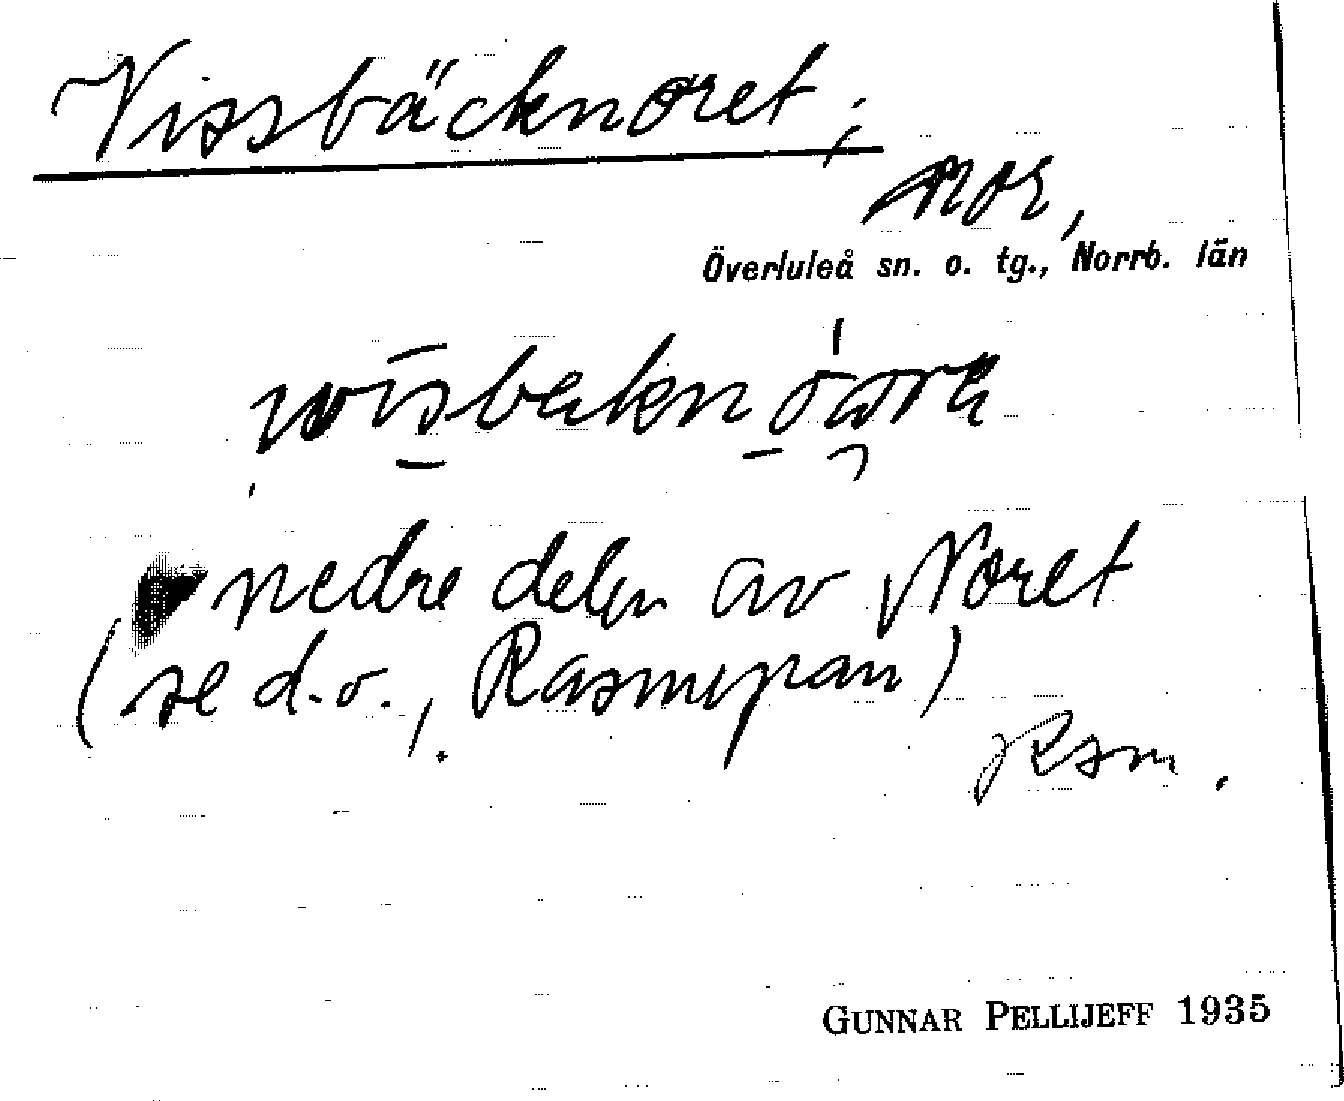 Vissbäcknoret;
nor,
Överluleå sn. o. tg., Norrb. län
nedre delen av Noret
(se d.o., Rasmyran)
Rsm.
GUNNAR PELLIJEFF 1935